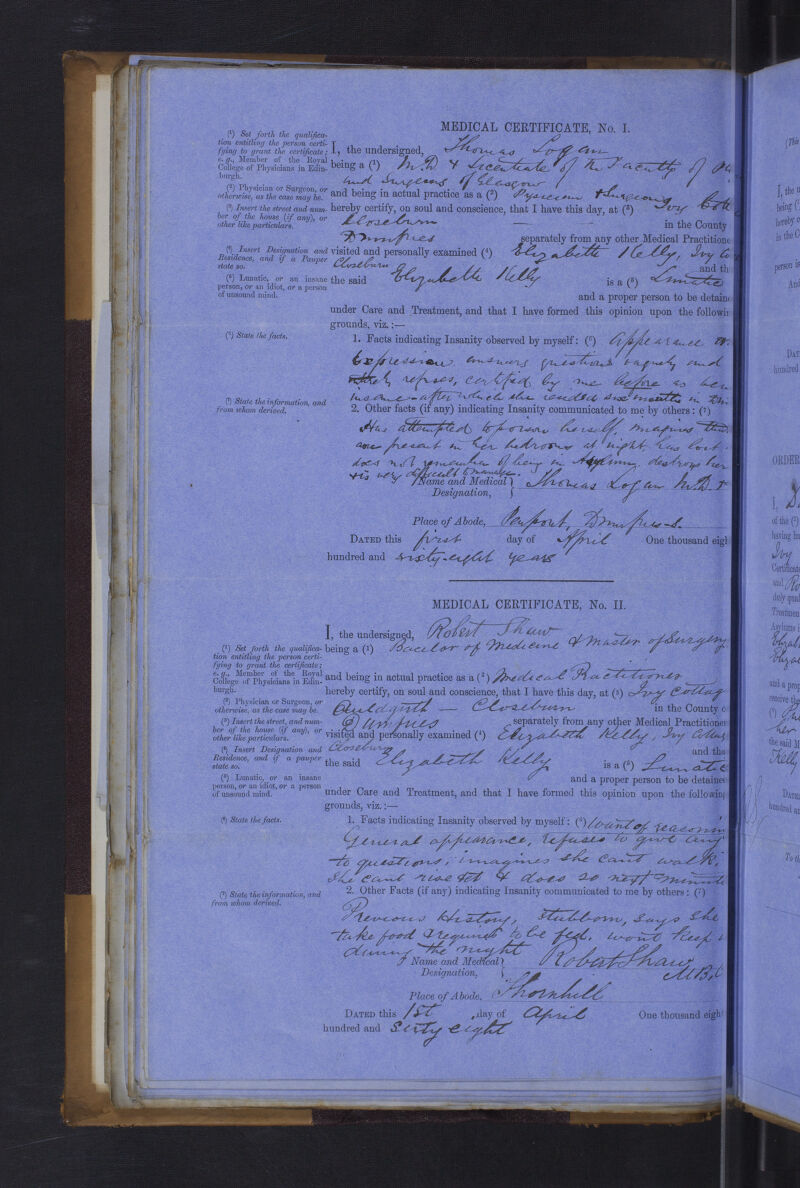 MEDICAL CERTIFICATE, No. I.
(¹) Set forth the qualifica-
tion entitling the person certi-
fying to grant the certificate;
e.g., Member of the Royal
College of Physicians in Edin-
burgh.
(²) Physician or Surgeon, or
otherwise, as the case may be.
(³) Insert the street and num-
ber of the house (if any), or
other like particulars.
(⁴) Insert Designation and
Residence, and if a Pauper
state so.
(⁵) Lunatic, or an insane
person, or an idiot, or a person
of unsound mind.
(⁶) State the facts.
(⁷) State the information, and
from whom derived.
I, the undersigned, Thomas Logan
being a (¹) M.D. & Licentiate of the Faculty of
and Surgeons of Glasgow
and being in actual practice as a (²) Physician & Surgeon
hereby certify, on soul and conscience, that I have this day, at (³) Ivy Cott
Closeburn in the County
Dumfries separately from any other Medical Practitione
visited and personally examined (⁴) Elizabeth Kelly, Ivy Co
Closeburn and th
the said Elizabeth Kelly is a (⁵) Lunatic
and a proper person to be detain
under Care and Treatment, and that I have formed this opinion upon the followin
grounds, viz.:—
1. Facts indicating Insanity observed by myself: (⁶) Appearance
Expression answers questions vaguely and
refuses, certified by me before as
insane - after which she resided six months in
2. Other facts (if any) indicating Insanity communicated to me by others: (⁷)
Has attempted to poison herself, imagines
are present in her bedroom at night has lost
does not remember of being in Asylum, destroys her
& is very difficult to manage.
Name and Medical Designation, Thomas Logan M.D.
Place of Abode, Penpont, Dumfries-s.
DATED this first day of April One thousand eigh
hundred and sixty-eight years
MEDICAL CERTIFICATE, No. II.
(¹) Set forth the qualifica-
tion entitling the person certi-
fying to grant the certificate;
e.g., Member of the Royal
College of Physicians in Edin-
burgh.
(²) Physician or Surgeon, or
otherwise, as the case may be.
(³) Insert the street, and num-
ber of the house (if any), or
other like particulars.
(⁴) Insert Designation and
Residence, and if a pauper
state so.
(⁵) Lunatic, or an insane
person, or an idiot, or a person
of unsound mind.
(⁶) State the facts.
(⁷) State the information, and
from whom derived.
I, the undersigned, Robert Shaw
being a (¹) Bacelor of Medicine & Master of Surgery
and being in actual practice as a (²) Medical Practitioner
hereby certify, on soul and conscience, that I have this day, at (³) Ivy Cottag
Auldgirth — Closeburn in the County o
Dumfries separately from any other Medical Practitioner
visited and personally examined (⁴) Elizabeth Kelly, Ivy Cottag
Closeburn and tha
the said Elizabeth Kelly is a (⁵) Lunatic
and a proper person to be detaine
under Care and Treatment, and that I have formed this opinion upon the followin
grounds, viz.:—
1. Facts indicating Insanity observed by myself: (⁶) Want of reasonin
General appearance, refuses to give any
to questions; imagines she cant walk,
She cant rise & does so next minute
2. Other Facts (if any) indicating Insanity communicated to me by others: (⁷)
Previous History, stubborn, says she
take food & requires to be fed. wont keep
during the night
Name and Medical Designation, Robert Shaw M.B.
Place of Abode, Thornhill
DATED this 1st day of April One thousand eigh
hundred and Sixty eight